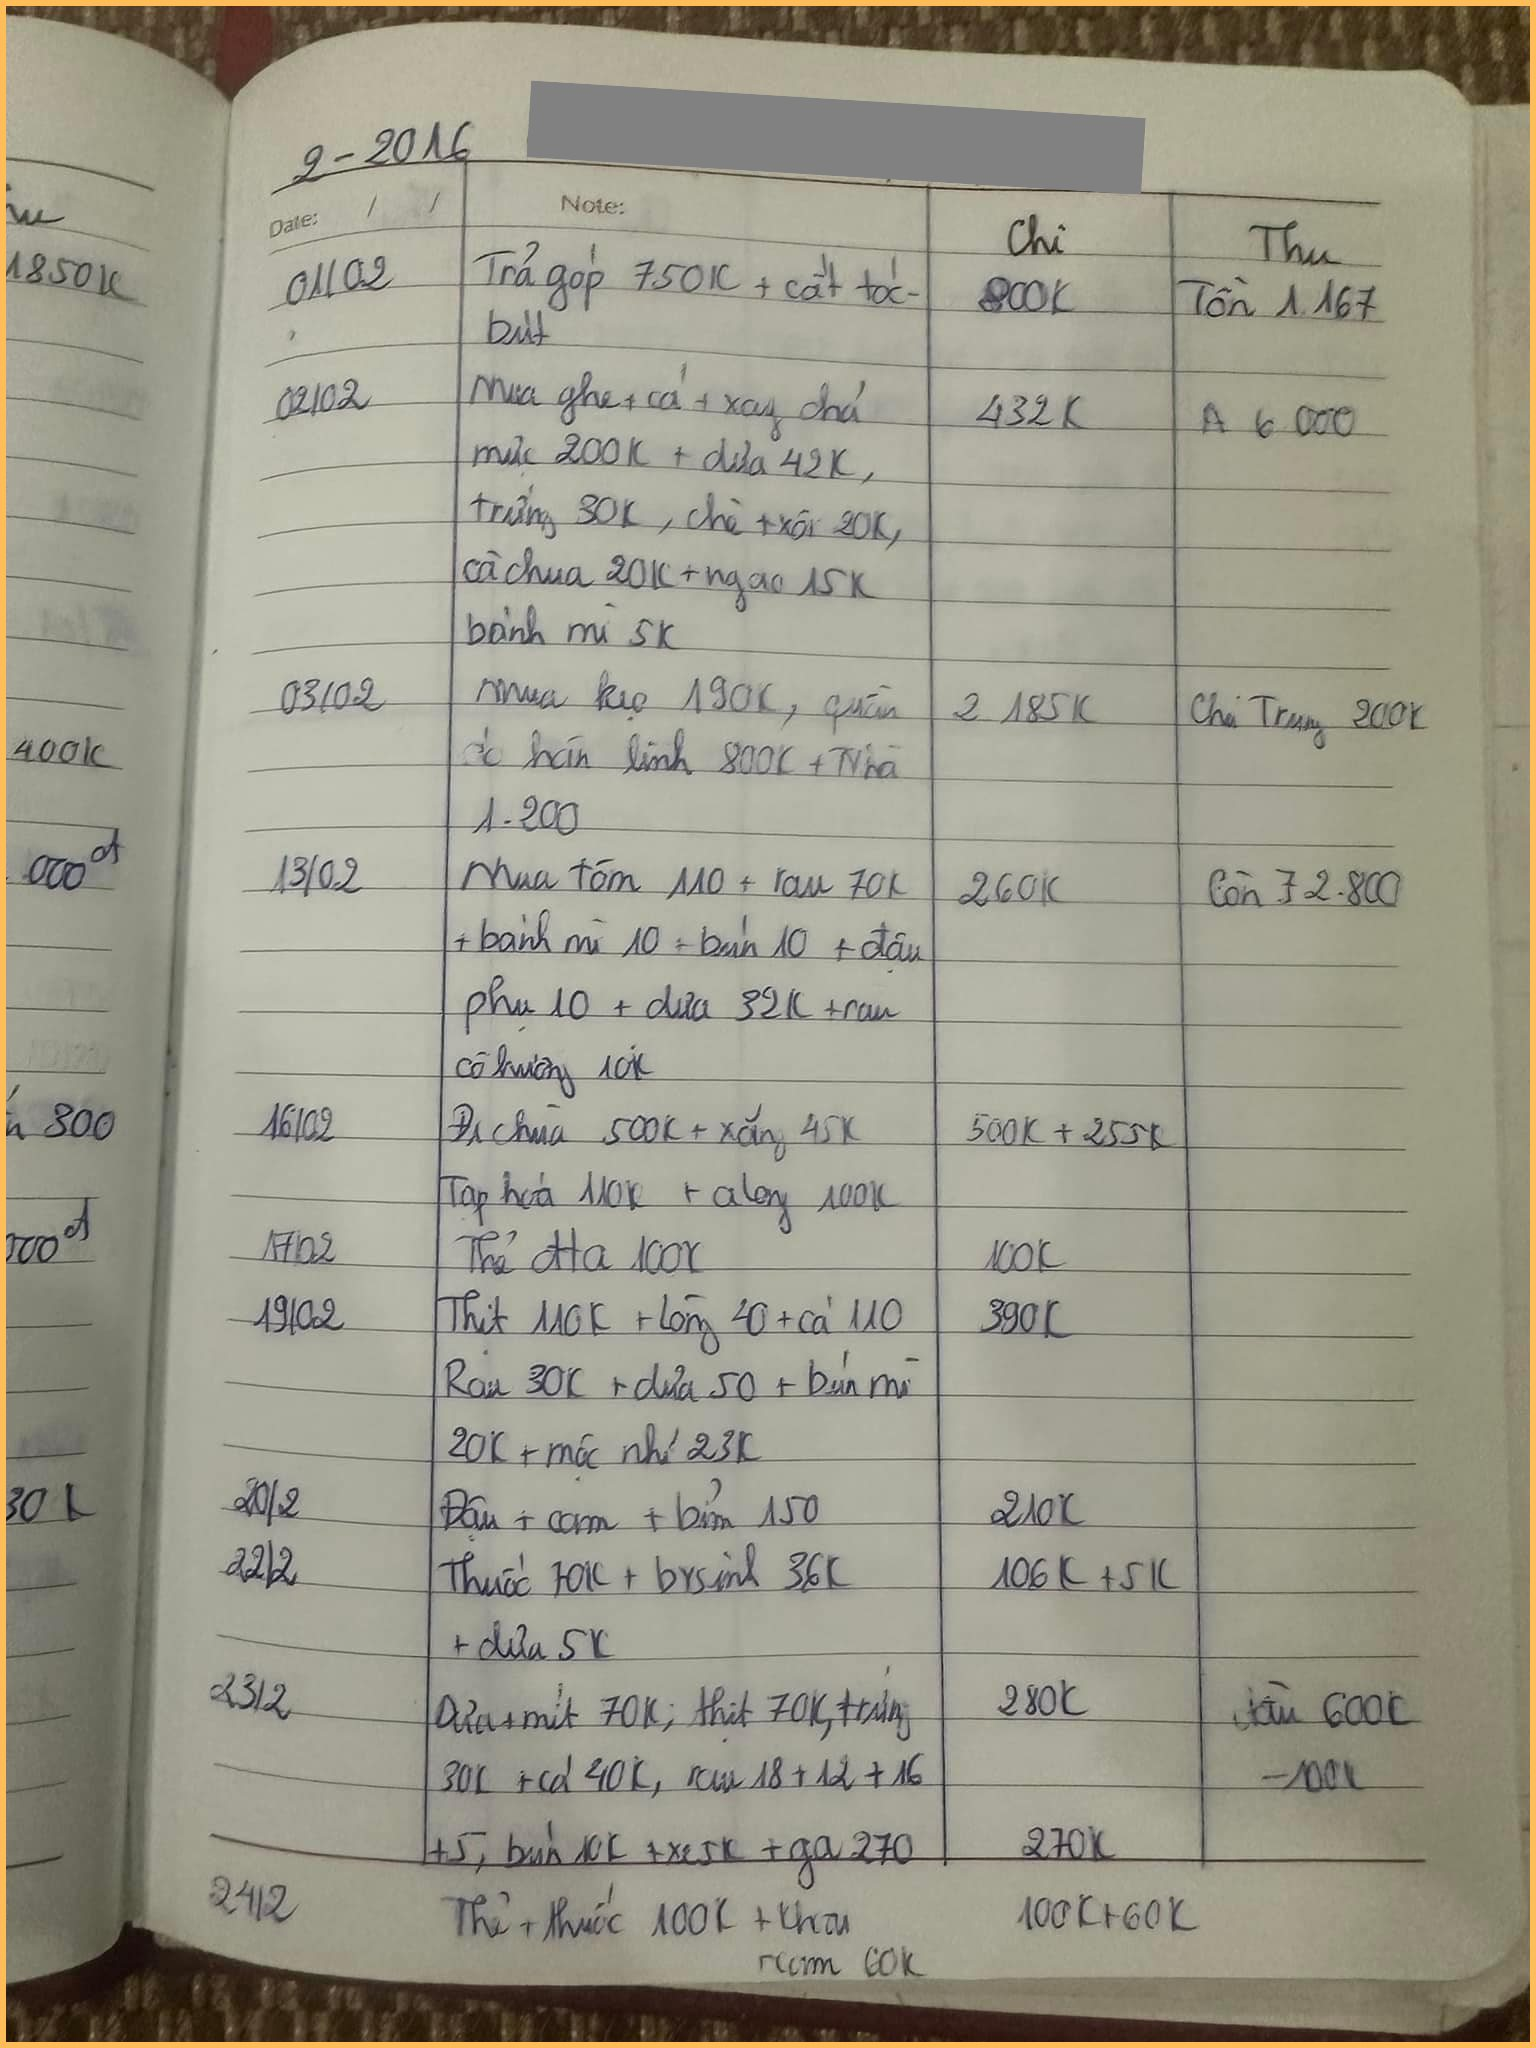 2-2016
Date: / / Note:
Chi Thu
01/02 Trả góp 750K + cắt tóc- 800K Tồn 1.167
bút
02/02 Mua ghẹ + cá + xay chả 432K A 6 000
mực 200K + dứa 42K,
trứng 30K, chè + xôi 20K,
cà chua 20K + ngao 15K
bánh mì 5K
03/02 Mua kẹo 190K, quần 2 185K Chị Trung 200K
áo hān linh 800K + Nhà
1.200
13/02 Mua tôm 110 + rau 70K 260K Còn 72.800
+ bánh mì 10 + bún 10 + đậu
phụ 10 + dưa 32K + rau
cô hương 10K
16/02 Đi chùa 500K + xăng 45K 500K + 255K
Tạp hoá 110K + along 100K
17/02 Thẻ 100K 100K
19/02 Thịt 110K + lòng 40 + cá 110 390K
Rau 30K + dứa 50 + bún mì
20K + mộc nhĩ 23K
20/2 Đậu + cam + bỉm 150 210K
22/2 Thuốc 70K + bvsinh 36K 106K + 5K
+ dứa 5K
23/2 Dứa + mít 70K; thịt 70K, trứng 280K 600K
30K + cá 40K, rau 18 + 12 + 16 -100K
+5, bún 10K + xe 5K + ga 270 270K
24/2 Thẻ + thuốc 100K + khoai 100K+60K
60K
1850K
400K
000đ
300
000đ
30K